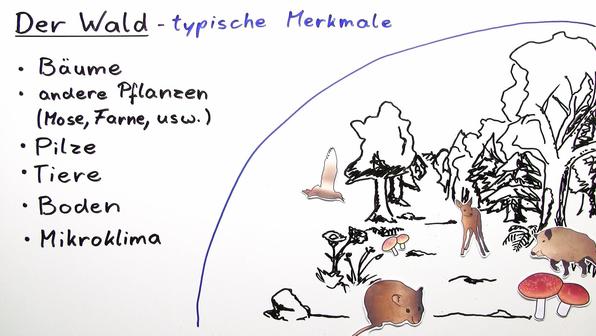 Der Wald - typische Merkmale
• Bäume
• andere Pflanzen
(Mose, Farne, usw.)
• Pilze
• Tiere
• Boden
• Mikroklima